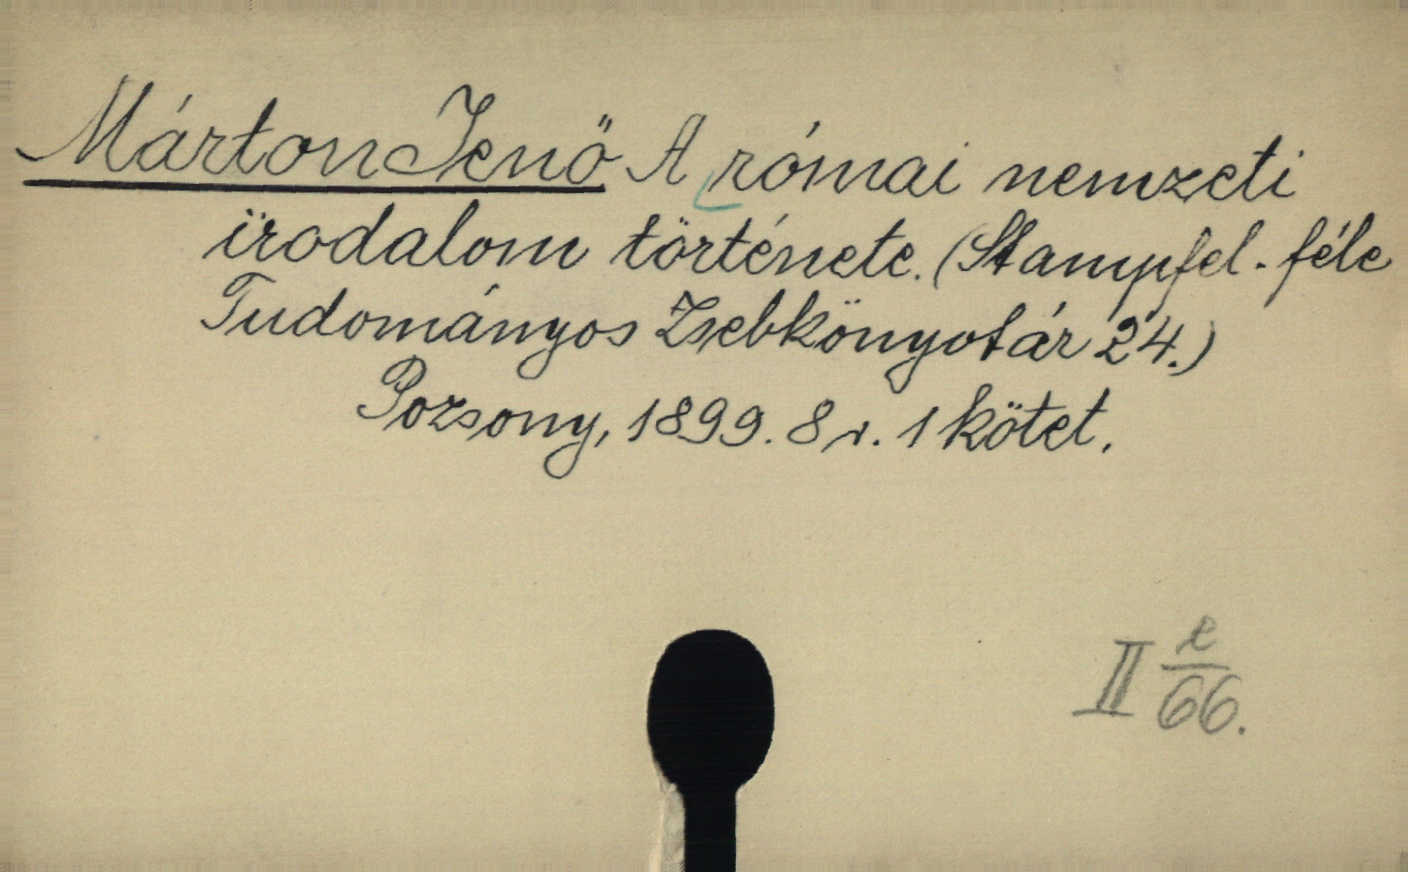 Márton Jenő A római nemzeti
irodalom története. (Stampfel-féle
Tudományos Zsebkönyvtár 24.)
Pozsony, 1899. 8 r. 1 kötet.
II e/66.